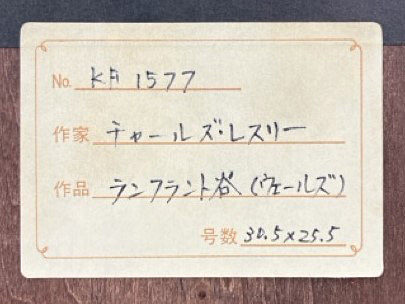 No. KA 1577
作家 チャールズ・レスリー
作品 ランフラント谷(ウェールズ)
号数 30.5×25.5